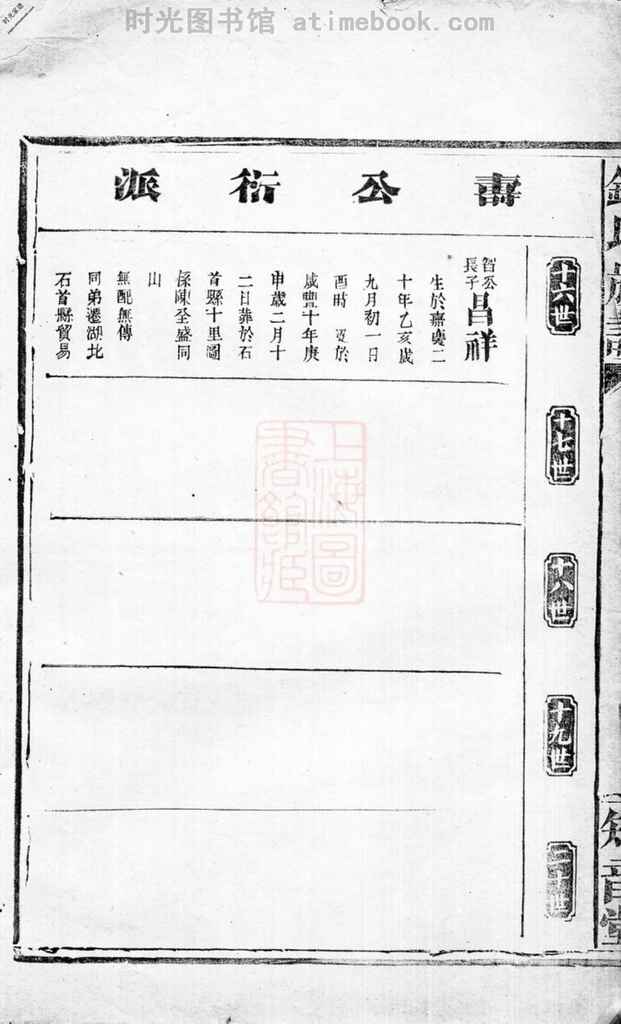 时光图书馆 atimebook.com
壽公衍派
十六世
十七世
十八世
十九世
二十世
長子
昌祥
生於嘉慶二
十年乙亥歲
九月初一日
酉時 歿於
咸豐十年庚
申歲二月十
二日葬於石
首縣十里圖
係陳至盛同
山
無配無傳
同弟遷湖北
石首縣貿易
上海圖
書館藏